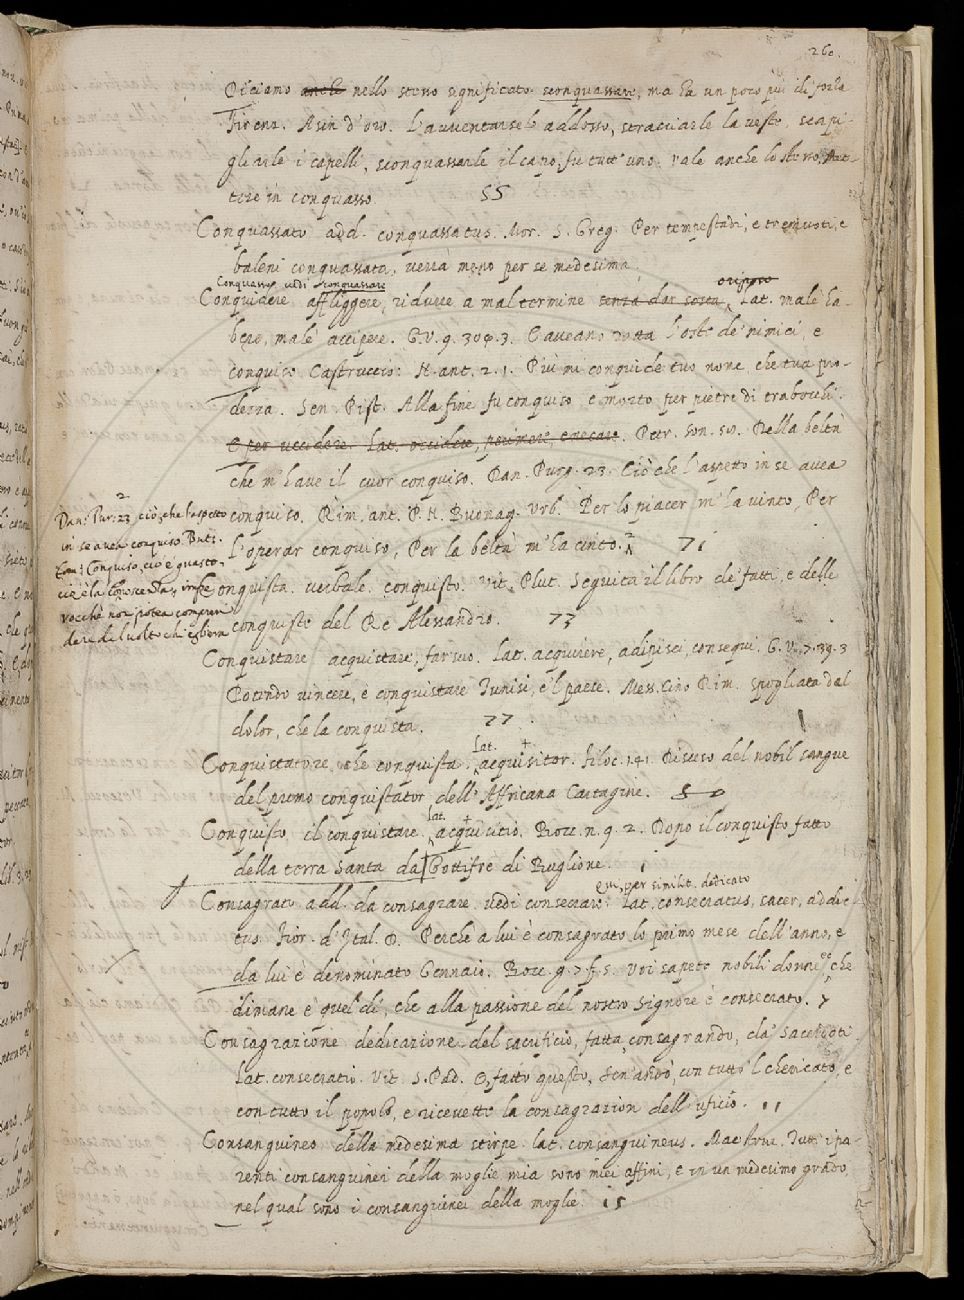 260.
Diciamo anche nello stesso significato sconquassare, ma ha un poco più di forza
Firenz. Asin d'oro. L'avventarsele addosso, stracciarle la vesta, scapi-
gliarle i capelli, sconquassarle il capo, fu tutt'uno. vale anche lo stesso, Met-
tere in conquasso. 55
Conquassato add. conquassatus. Mor. S. Greg. Per tempestadi, e tremuoti, e
baleni conquassata, verrà meno per se medesima.
Conquasso vedi sconquassare
Conquidere affliggere, ridurre a mal termine senza dar sosta, Lat. male ha-
bere, male accipere. G.V. 9. 304. 3. E aveano rotta l'oste de' nimici, e
conquiso Castruccio. N. ant. 2. 1. Più mi conquide tuo nome, che tua pro-
dezza. Sen. Pist. Alla fine fu conquiso e morto per pietre di trabocchi.
E per uccidere. Lat. occidere, perimere, enecare. Petr. son. 50. Della beltà
che m'have il cuor conquiso. Dan. Purg. 23. Ciò che l'aspetto in se avea
conquiso. Rim. ant. P. N. Buonag. Urb. Per lo piacer m'ha vinto, Per
l'operar conquiso, Per la beltà m'ha cinto. 2 71
2
Dan. Pur. 23 ciò che l'aspetto
in se avea conquiso. But.
Conquiso, cioè guasto,
cioè la conoscenza,
rocchè non potea compren-
dere del volto chi
Conquista. verbale. conquisto. Vit. Plut. Seguita il libro de' fatti, e delle
conquiste del Re Alessandro. 73
Conquistare acquistare, far suo. Lat. acquirere, adipisci, consequi. G.V. 7. 39. 3
Potendo vincere, e conquistare Tunisi, e'l paese. Mess. Cino Rim. spogliata dal
dolor, che la conquista. 77
Conquistatore che conquista. Lat. acquisitor. Filoc. 141. Disceso del nobil sangue
del primo conquistator dell'Affricana Cartagine. 80
Conquisto, il conquistare. Lat. acquisitio. Bocc. n. 9. 2. Dopo il conquisto fatto
della terra Santa da Gottifre di Buglione. 1
Consagrato add. da consagrare. vedi consecrare. e per similit. dedicato Lat. consecratus, sacer, addic-
tus. Fior. d'Ital. D. Perchè a lui è consagrato lo primo mese dell'anno, e
da lui è denominato Gennaio. Bocc. g. 7. f. 5. Voi sapete nobili donne, che
dimane è quel dì, che alla passione del nostro Signore è consecrato. 7
Consagrazione dedicazione del sacrificio, fatta, consagrando, da' Sacerdoti.
Lat. consecratio. Vit. S. Pad. E, fatto questo, sen'andò, con tutto'l chericato, e
con tutto il popolo, e ricevette la consagrazion dell'uficio. 11
Consanguineo della medesima stirpe. lat. consanguineus. Maestruz. Tutti i pa-
renti consanguinei della moglie mia sono miei affini, e in un medesimo grado,
nel qual sono i consanguinei della moglie. 15